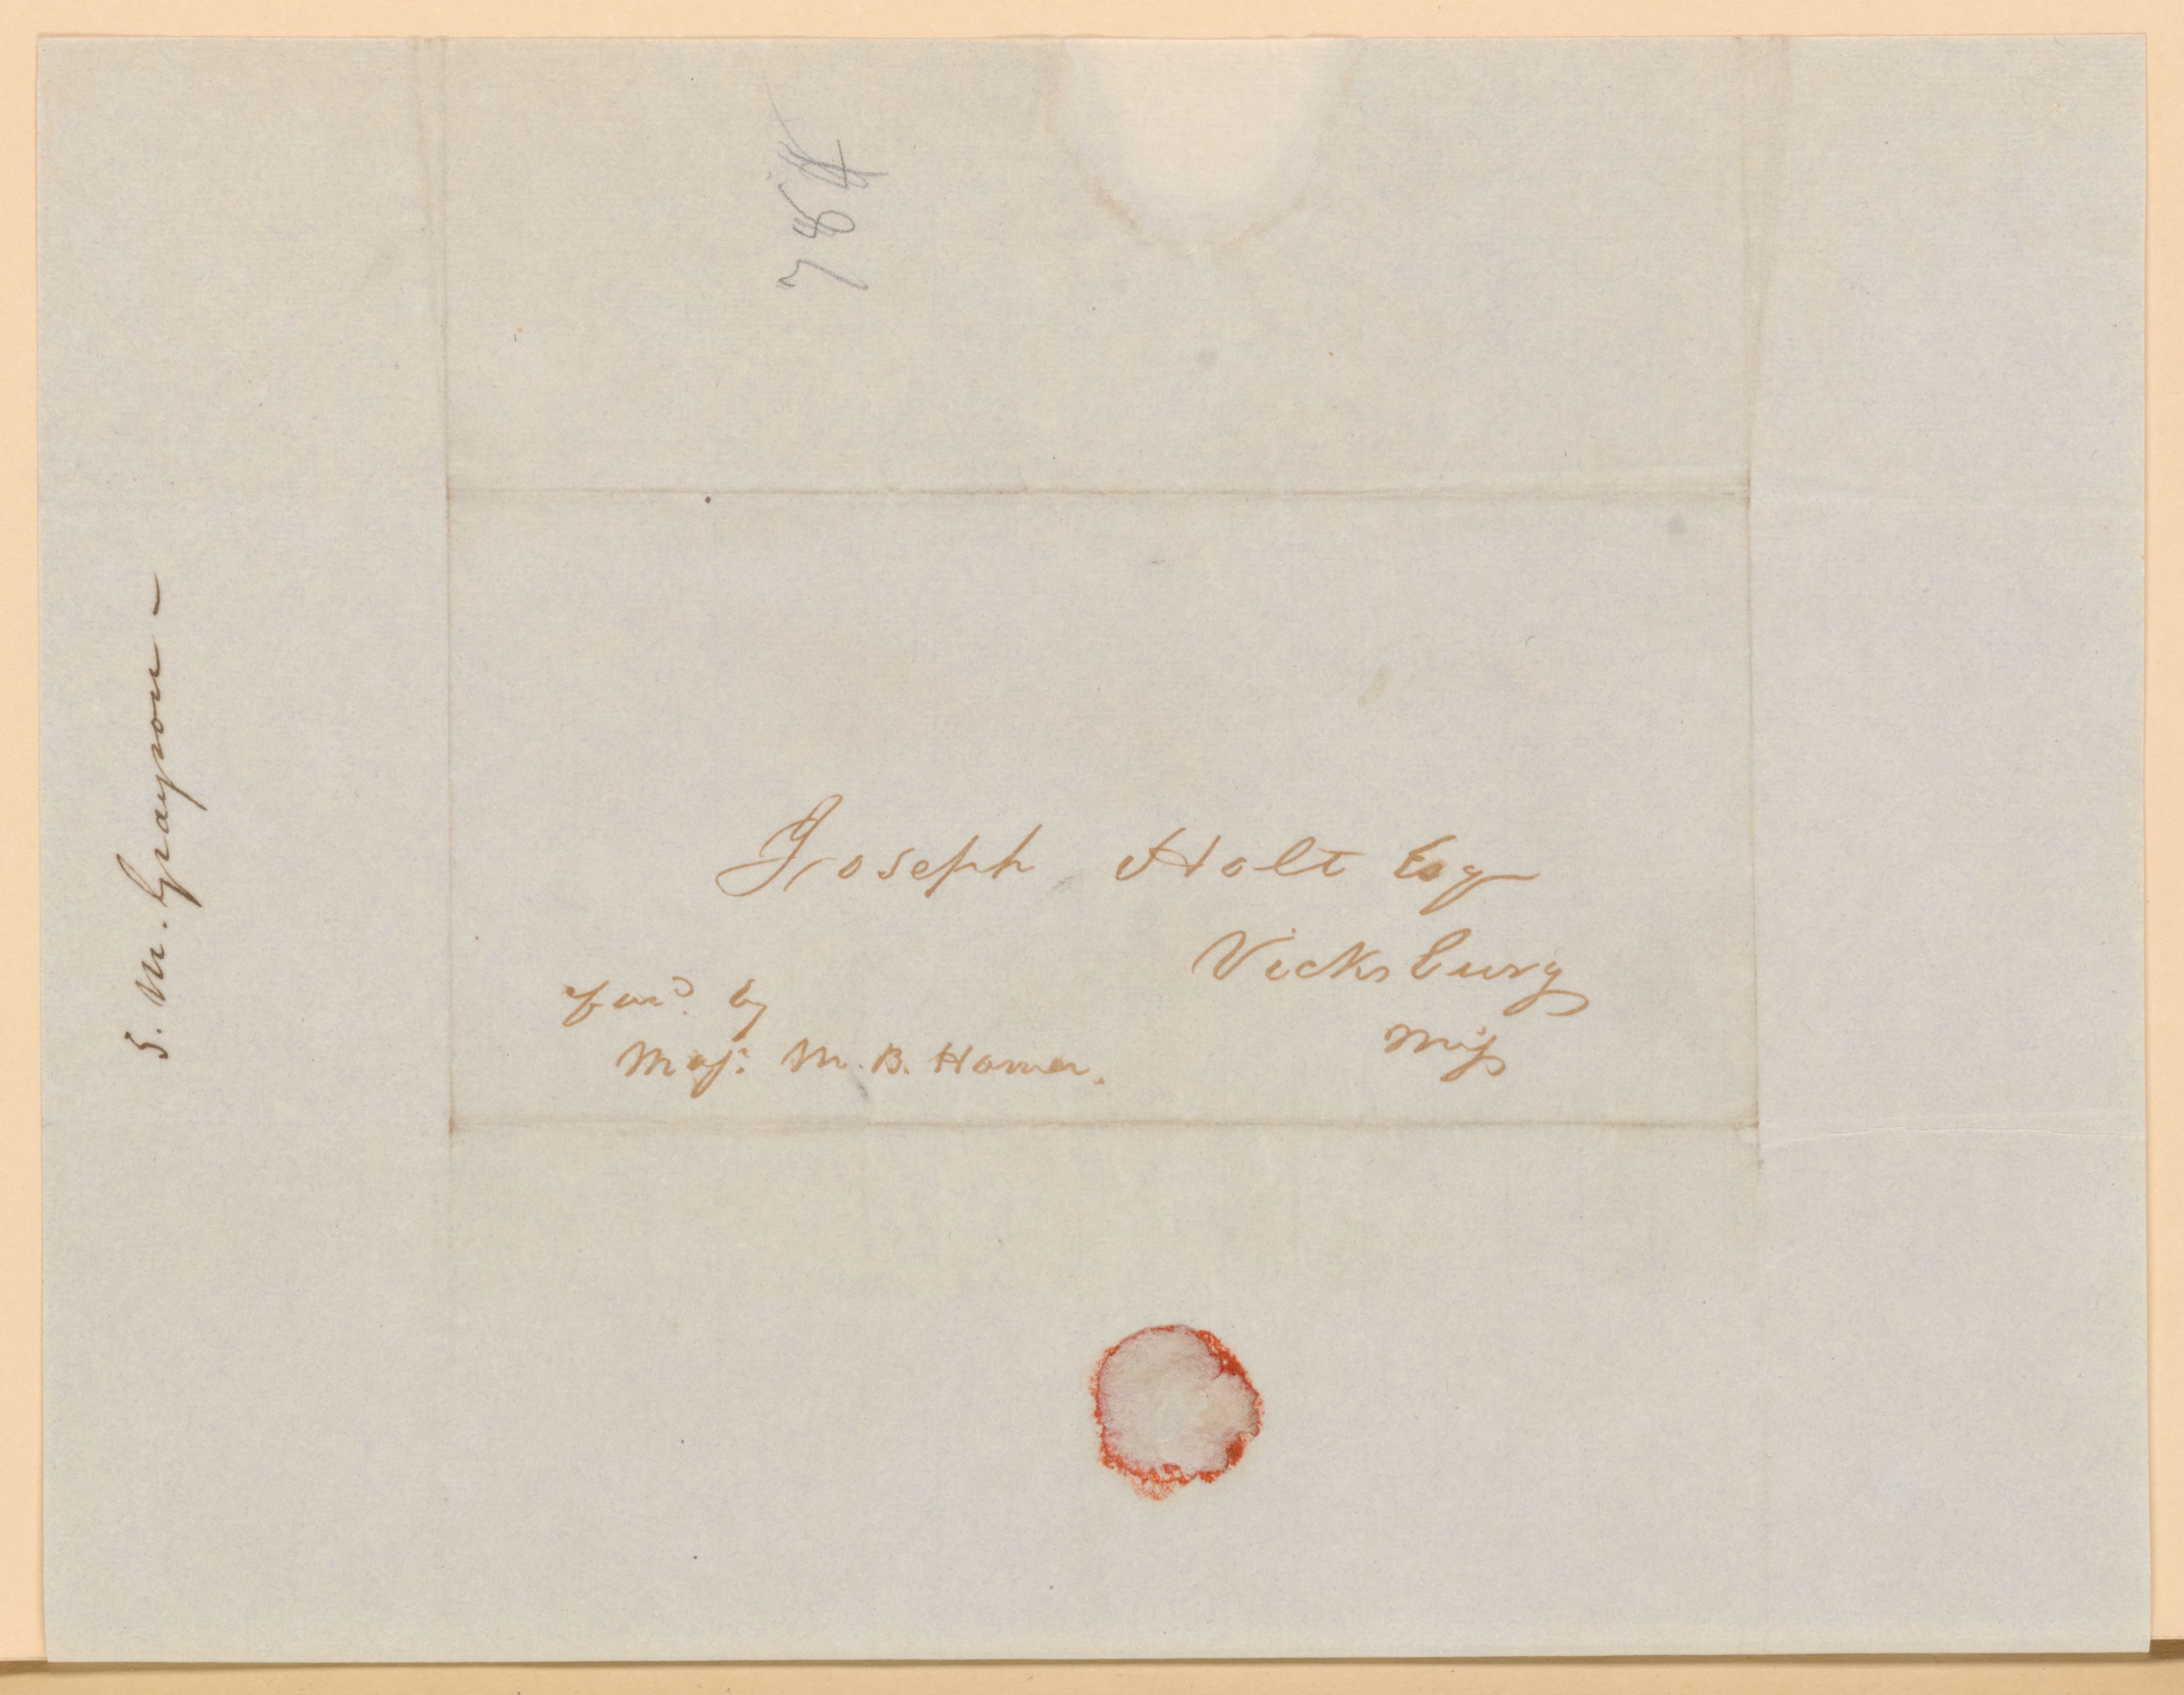 784
Joseph Holt Esq
Vicksburg
Miss
fwd by
Maj: M. B. Hamer.
S. M. Grayson –